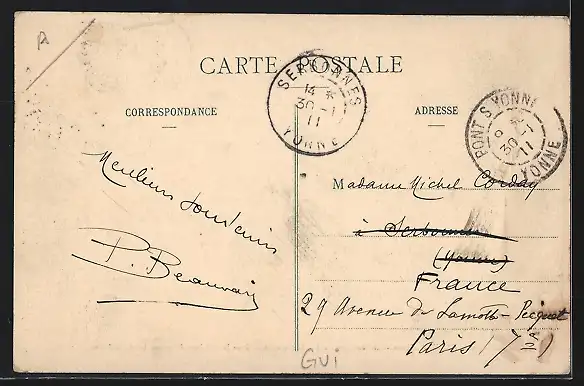 A
CARTE POSTALE
CORRESPONDANCE
ADRESSE
SERBONNES
14 *
30 - 1
11
YONNE
PONT S YONNE
9 *
30 - 1
11
YONNE
Meilleurs souvenirs
P. Beauvais
Madame Michel Corday
à Serbonnes
(Yonne)
France
29 Avenue de Lamotte-Picquet
Paris (7
Gui